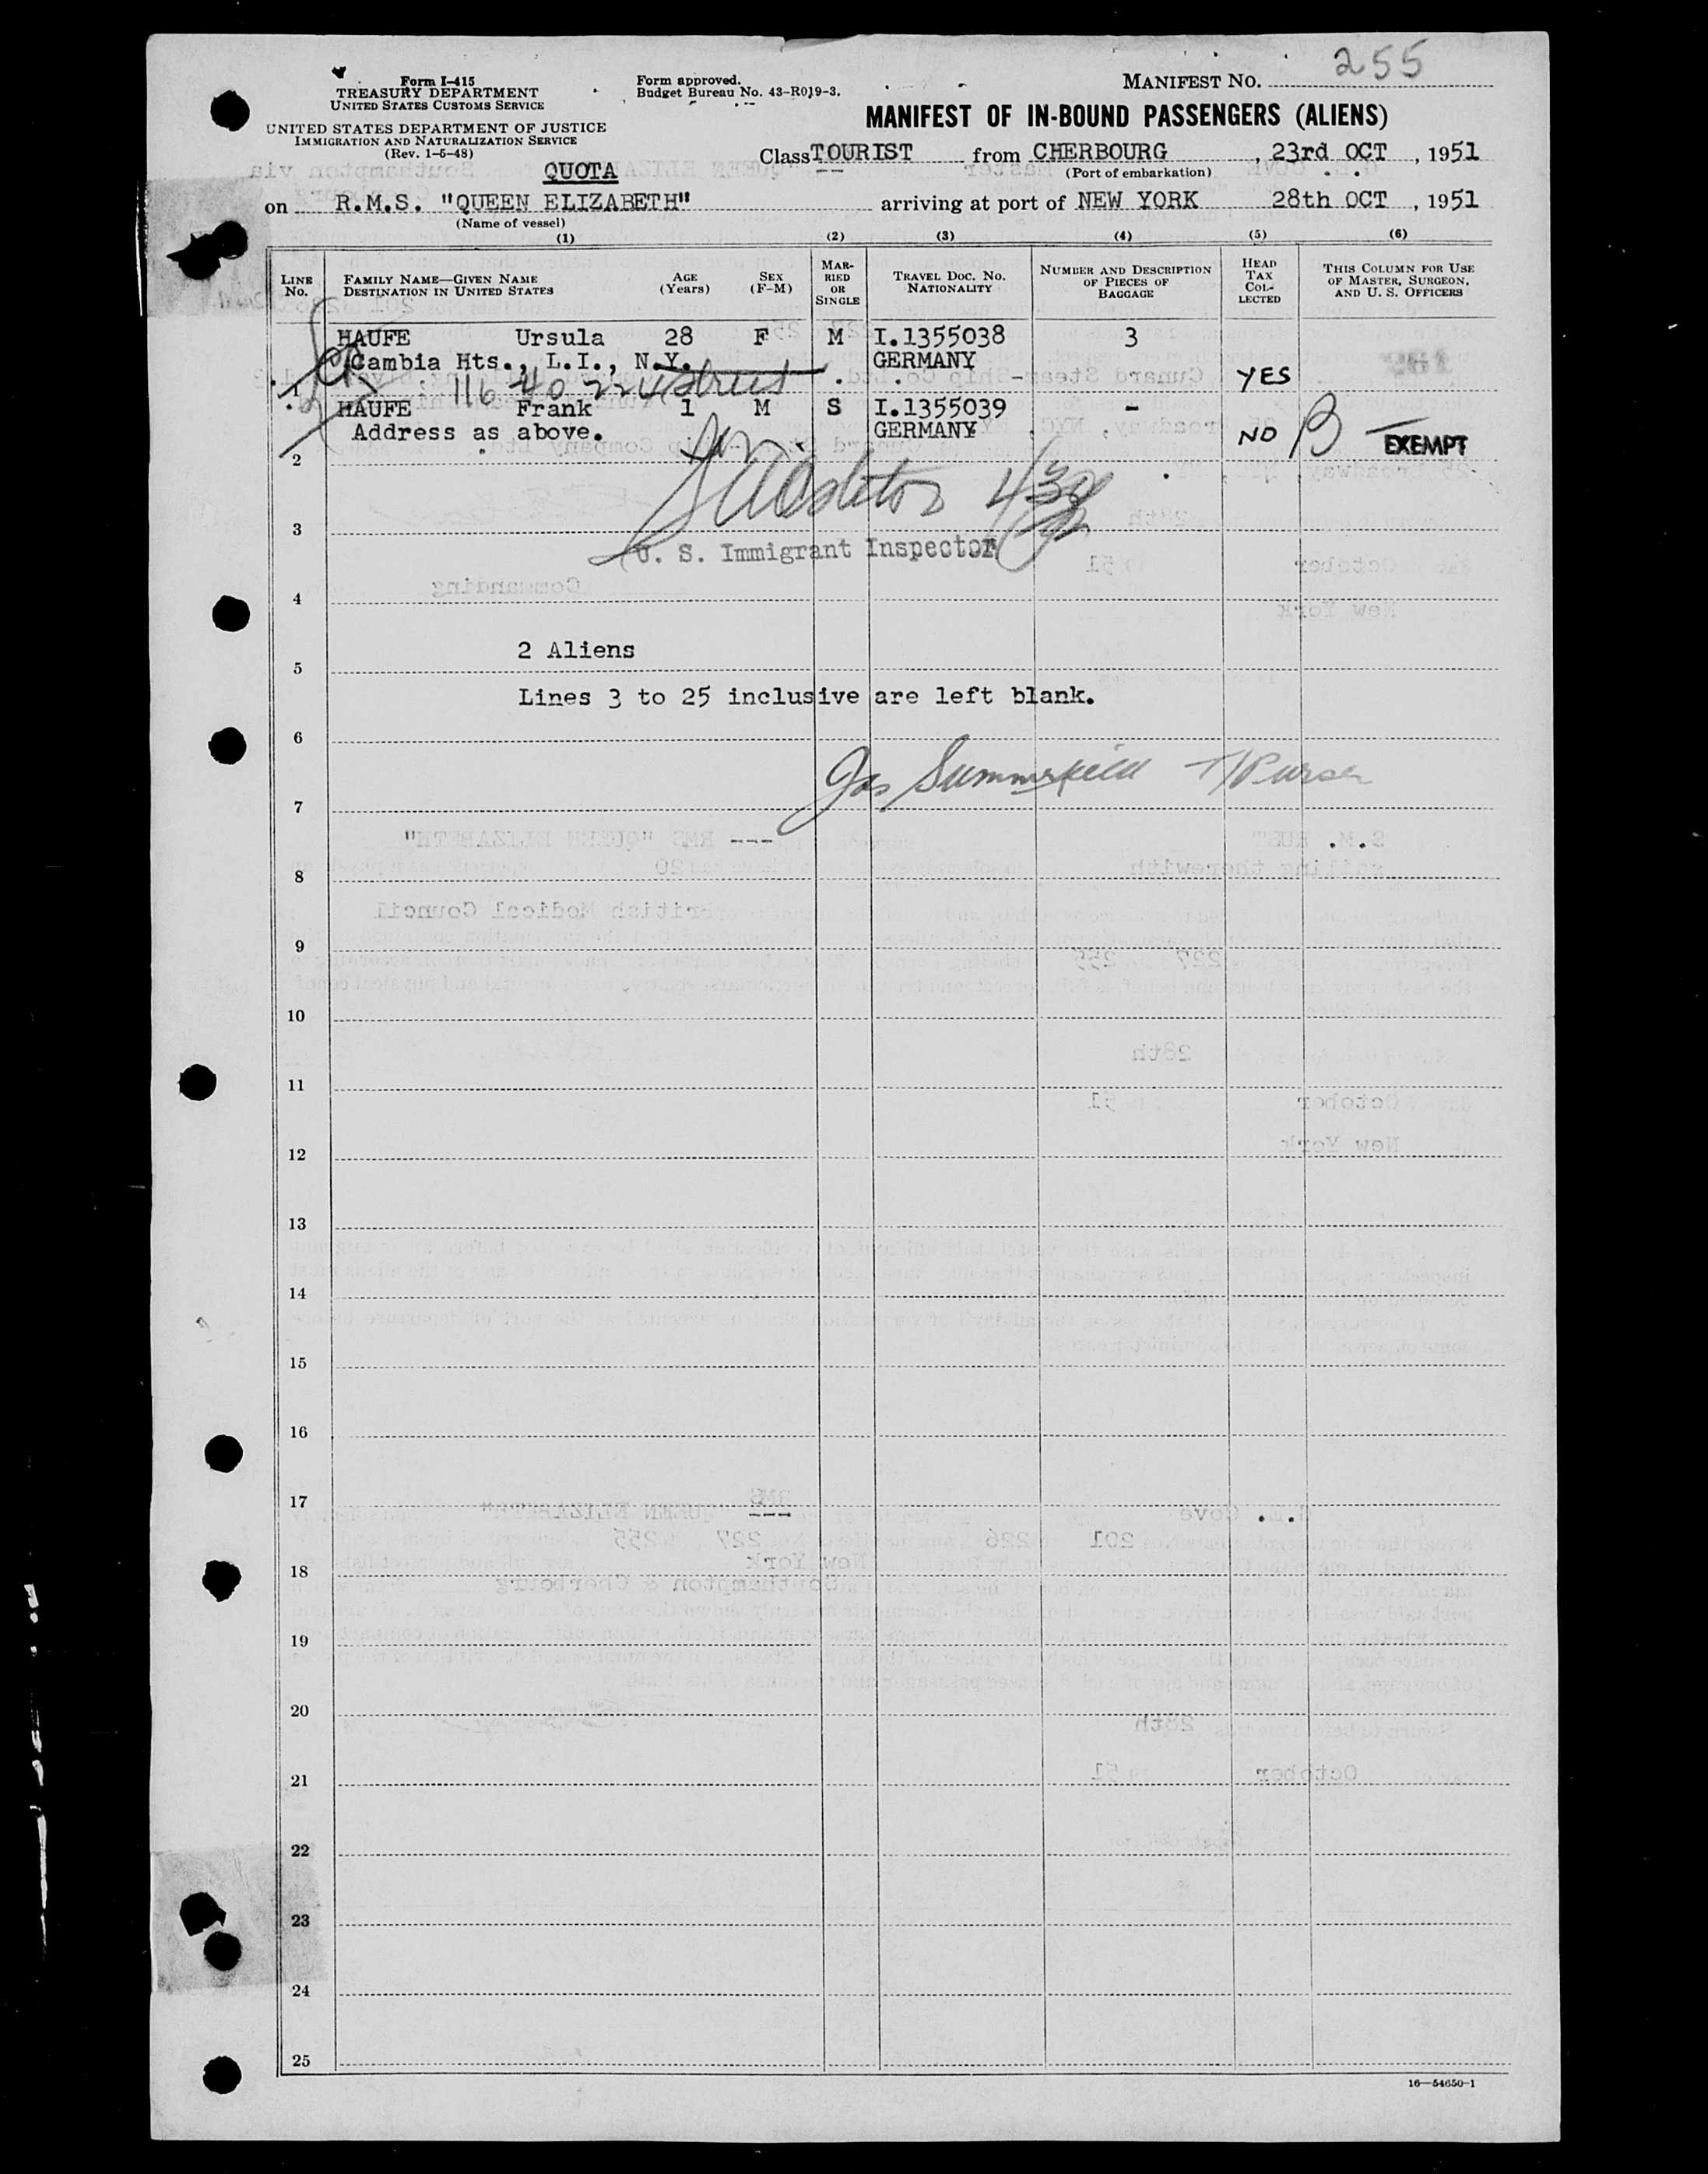 255
Form I-415
TREASURY DEPARTMENT
UNITED STATES CUSTOMS SERVICE
Form approved.
Budget Bureau No. 43-R019-3.
MANIFEST NO.
MANIFEST OF IN-BOUND PASSENGERS (ALIENS)
UNITED STATES DEPARTMENT OF JUSTICE
IMMIGRATION AND NATURALIZATION SERVICE
(Rev. 1-5-48)
Class TOURIST from CHERBOURG, 23rd OCT, 1951
(Port of embarkation)
QUOTA
on R.M.S. "QUEEN ELIZABETH" arriving at port of NEW YORK 28th OCT, 1951
(Name of vessel)
(1) (2) (3) (4) (5) (6)
LINE No. FAMILY NAME—GIVEN NAME DESTINATION IN UNITED STATES AGE (Years) SEX (F-M) MARRIED OR SINGLE TRAVEL DOC. NO. NATIONALITY NUMBER AND DESCRIPTION OF PIECES OF BAGGAGE HEAD TAX COLLECTED THIS COLUMN FOR USE OF MASTER, SURGEON, AND U. S. OFFICERS
HAUFE Ursula 28 F M I.1355038 3
Cambia Hts., L.I., N.Y. GERMANY
1 116-40 224 street YES
HAUFE Frank 1 M S I.1355039 -
Address as above. GERMANY NO B EXEMPT
2
3
U. S. Immigrant Inspector
4
2 Aliens
5
Lines 3 to 25 inclusive are left blank.
6
Jas Summerfield T/Purser
7
8
9
10
11
12
13
14
15
16
17
18
19
20
21
22
23
24
25
16—54650-1